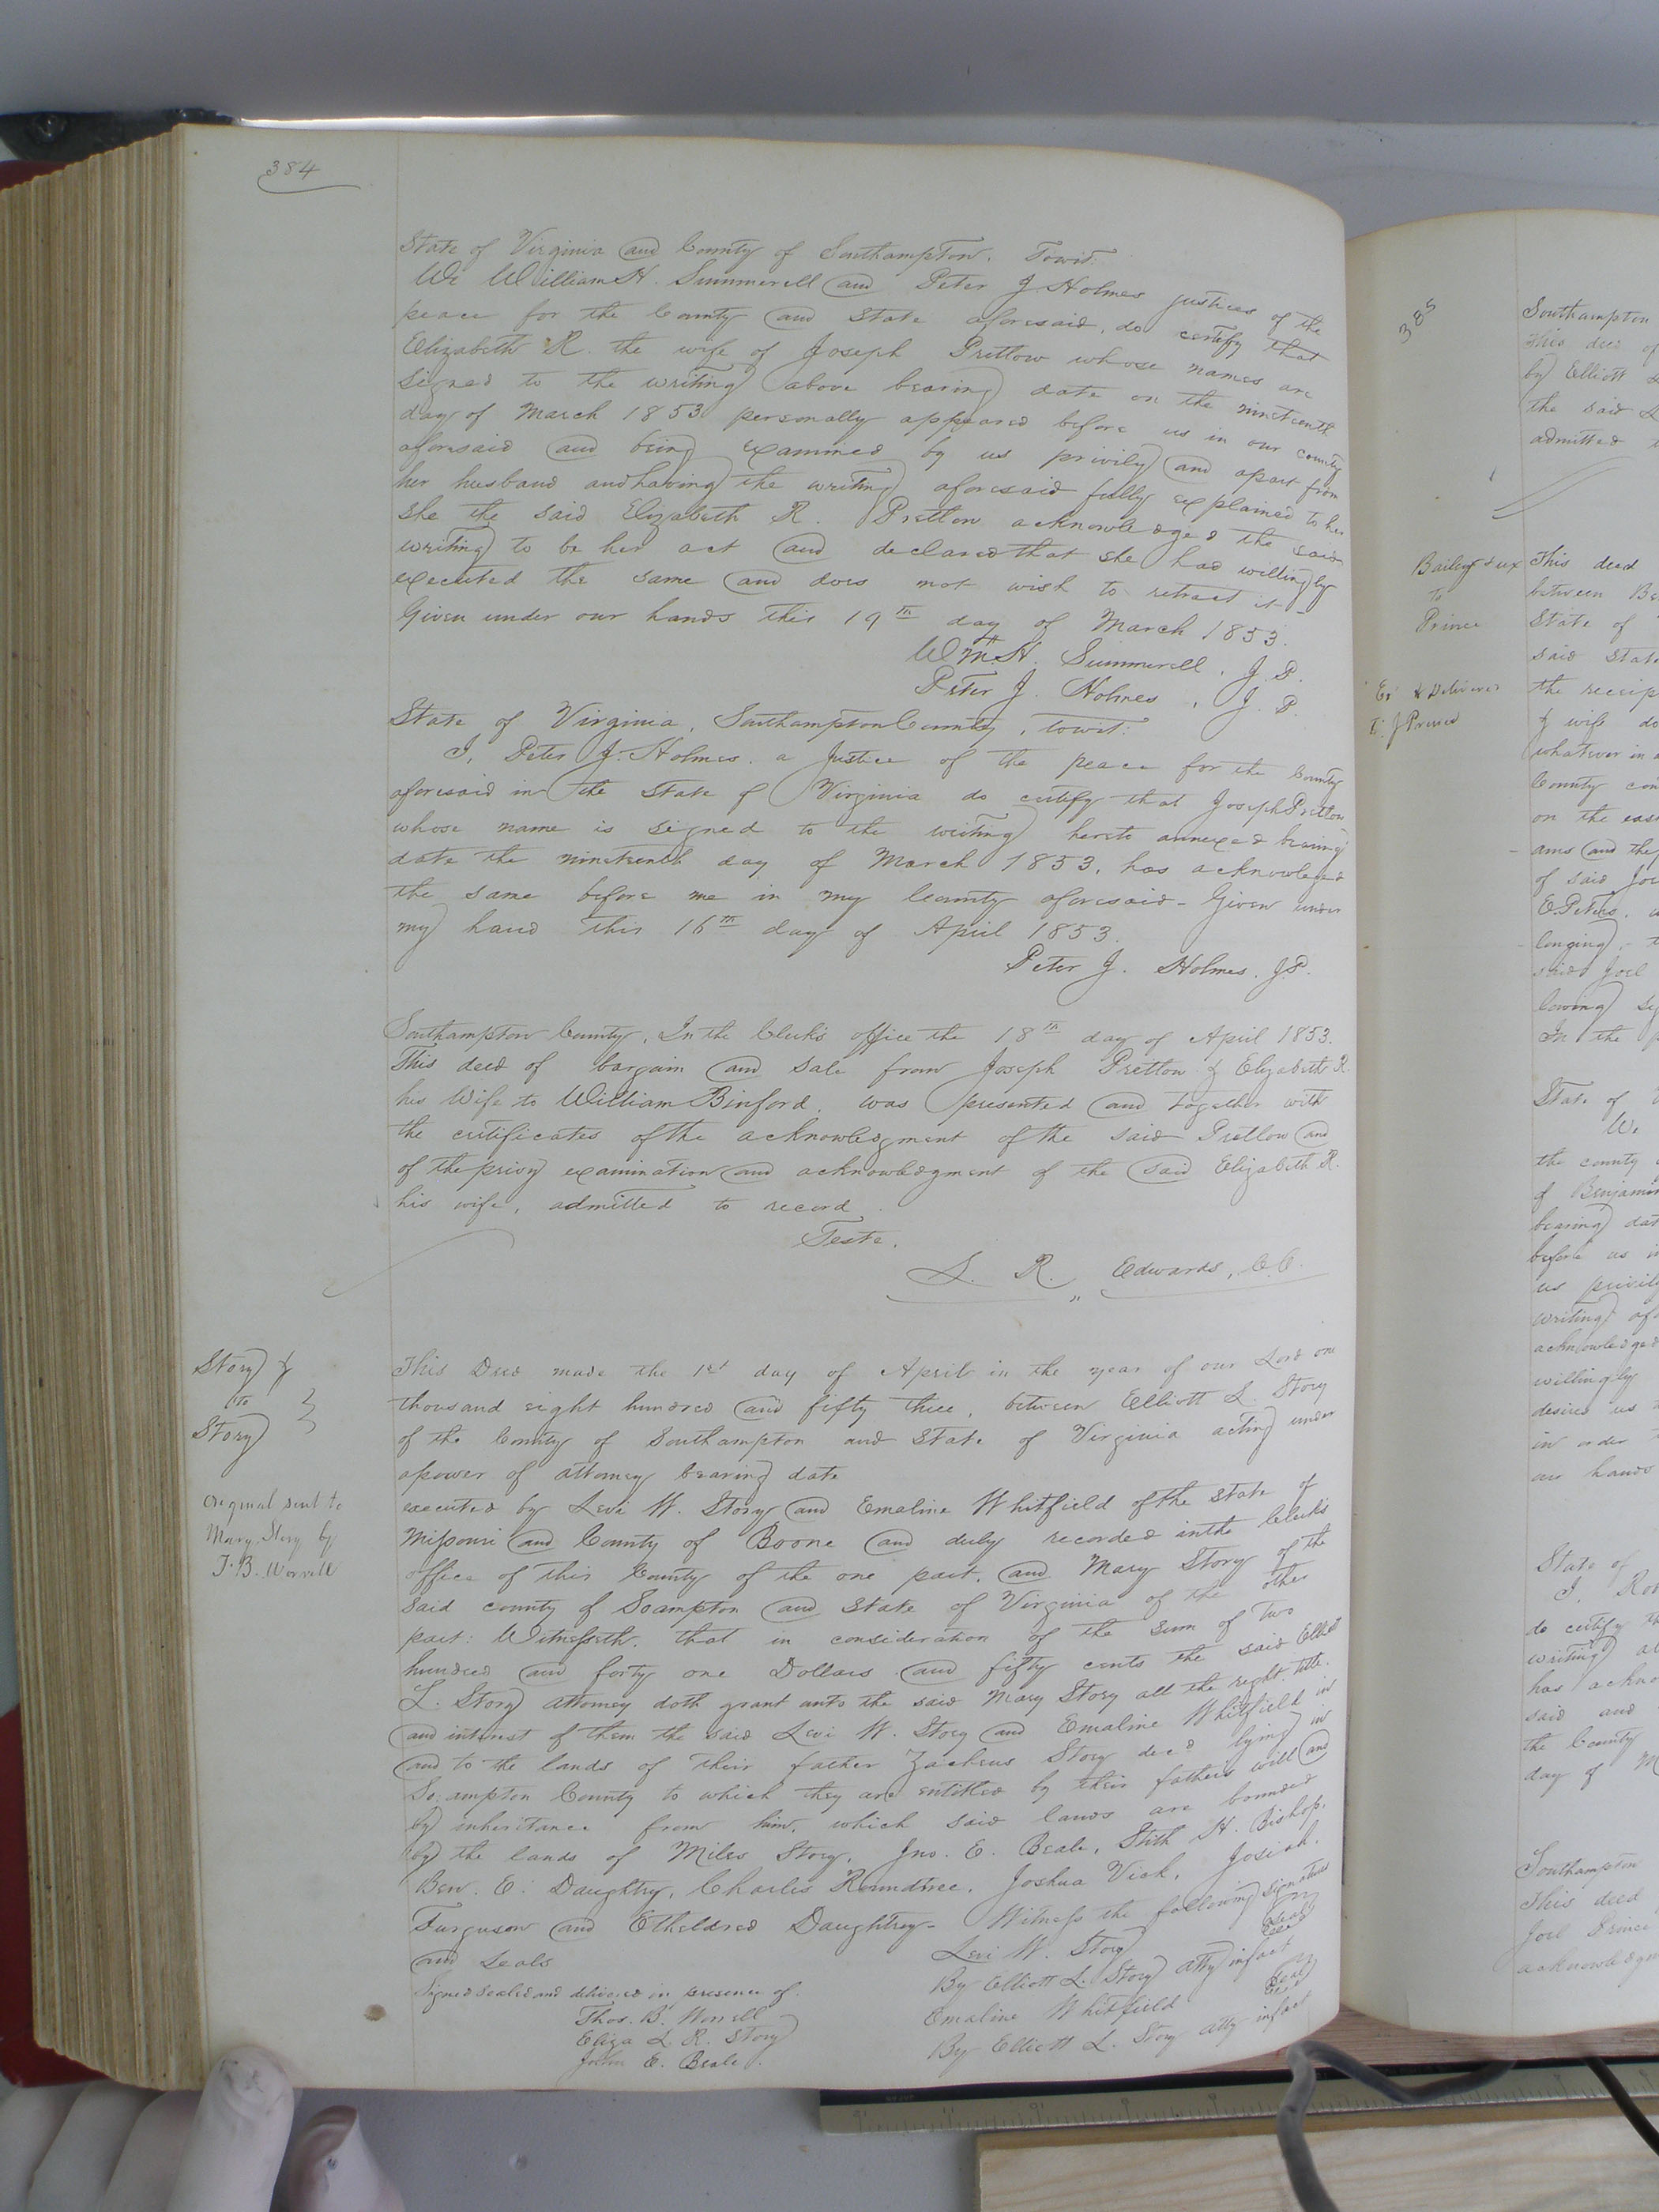 384
State of Virginia and County of Southampton. Towit:
We William H. Summerell and Peter J. Holmes justices of the
peace for the County and State aforesaid, do certify that
Elizabeth R. the wife of Joseph Pretlow whose names are
signed to the writing above bearing date on the nineteenth
day of March 1853 personally appeared before us in our county
aforesaid and being examined by us privily and apart from
her husband and having the writing aforesaid fully explained to her
she the said Elizabeth R. Pretlow acknowledged the said
writing to be her act and declared that she had willingly
executed the same and does not wish to retract it -
Given under our hands this 19th day of March 1853.
Wm. H. Summerell, J. P.
Peter J. Holmes, J. P.
State of Virginia, Southampton County, towit:
I, Peter J. Holmes, a Justice of the peace for the County
aforesaid in the State of Virginia do certify that Joseph Pretlow
whose name is signed to the writing hereto annexed bearing
date the nineteenth day of March 1853, has acknowledged
the same before me in my county aforesaid - Given under
my hand this 16th day of April 1853.
Peter J. Holmes. J.P.
Southampton County, In the Clerk's office the 18th day of April 1853.
This deed of bargain and sale from Joseph Pretlow & Elizabeth R.
his Wife to William Binford, was presented and together with
the certificates of the acknowledgment of the said Pretlow and
of the privy examination and acknowledgment of the said Elizabeth R.
his wife, admitted to record.
Teste,
L. R. Edwards, C.C.
Story &
to
Story
Original sent to
Mary Story by
T. B. Worrell
This Deed made the 1st day of April in the year of our Lord one
thousand eight hundred and fifty three, between Elliott L. Story
of the County of Southampton and State of Virginia acting under
a power of attorney bearing date
executed by Levi W. Story and Emaline Whitfield of the State of
Missouri and County of Boone and duly recorded in the Clerk's
office of this County of the one part, and Mary Story of the
said county of Soampton and State of Virginia of the other
part: Witnesseth, that in consideration of the sum of two
hundred and forty one Dollars and fifty cents the said Elliott
L. Story attorney doth grant unto the said Mary Story all the right title
and interest of them the said Levi W. Story and Emaline Whitfield in
and to the lands of their father Zacheus Story decd lying in
So.ampton County to which they are entitled by their fathers will and
by inheritance from him, which said lands are bounded
by the lands of Miles Story, Jno. E. Beale, Stith H. Bishop,
Benj. E. Daughtry, Charles Roundtree, Joshua Vick, Josiah
Furguson and Etheldred Daughtrey - Witness the following signatures
and seals
Levi W. Story Seal
By Elliott L. Story atty in fact
Emaline Whitfield Seal
By Elliott L. Story atty in fact
Signed sealed and delivered in presence of
Thos. B. Worrell
Eliza L. R. Story
John E. Beale.
385
Southampton
This deed of
by Elliott
the said
admitted
Bailey & ux
to
Prince
This deed
between
State of
said State
the receip
& wife do
whatever in
County con
on the eas
ams and the
of said Joe
E. Peters,
longing,
said Joel
lowing
In the
State of
We
the county
of Benjamin
bearing dat
before us
us privily
writing afo
acknowledged
willingly
desires us
in order
our hands
State of
I,
do certify
writing
has ackno
said and
the County
day of
Southampton
This deed
Joel Prince
acknowledgm